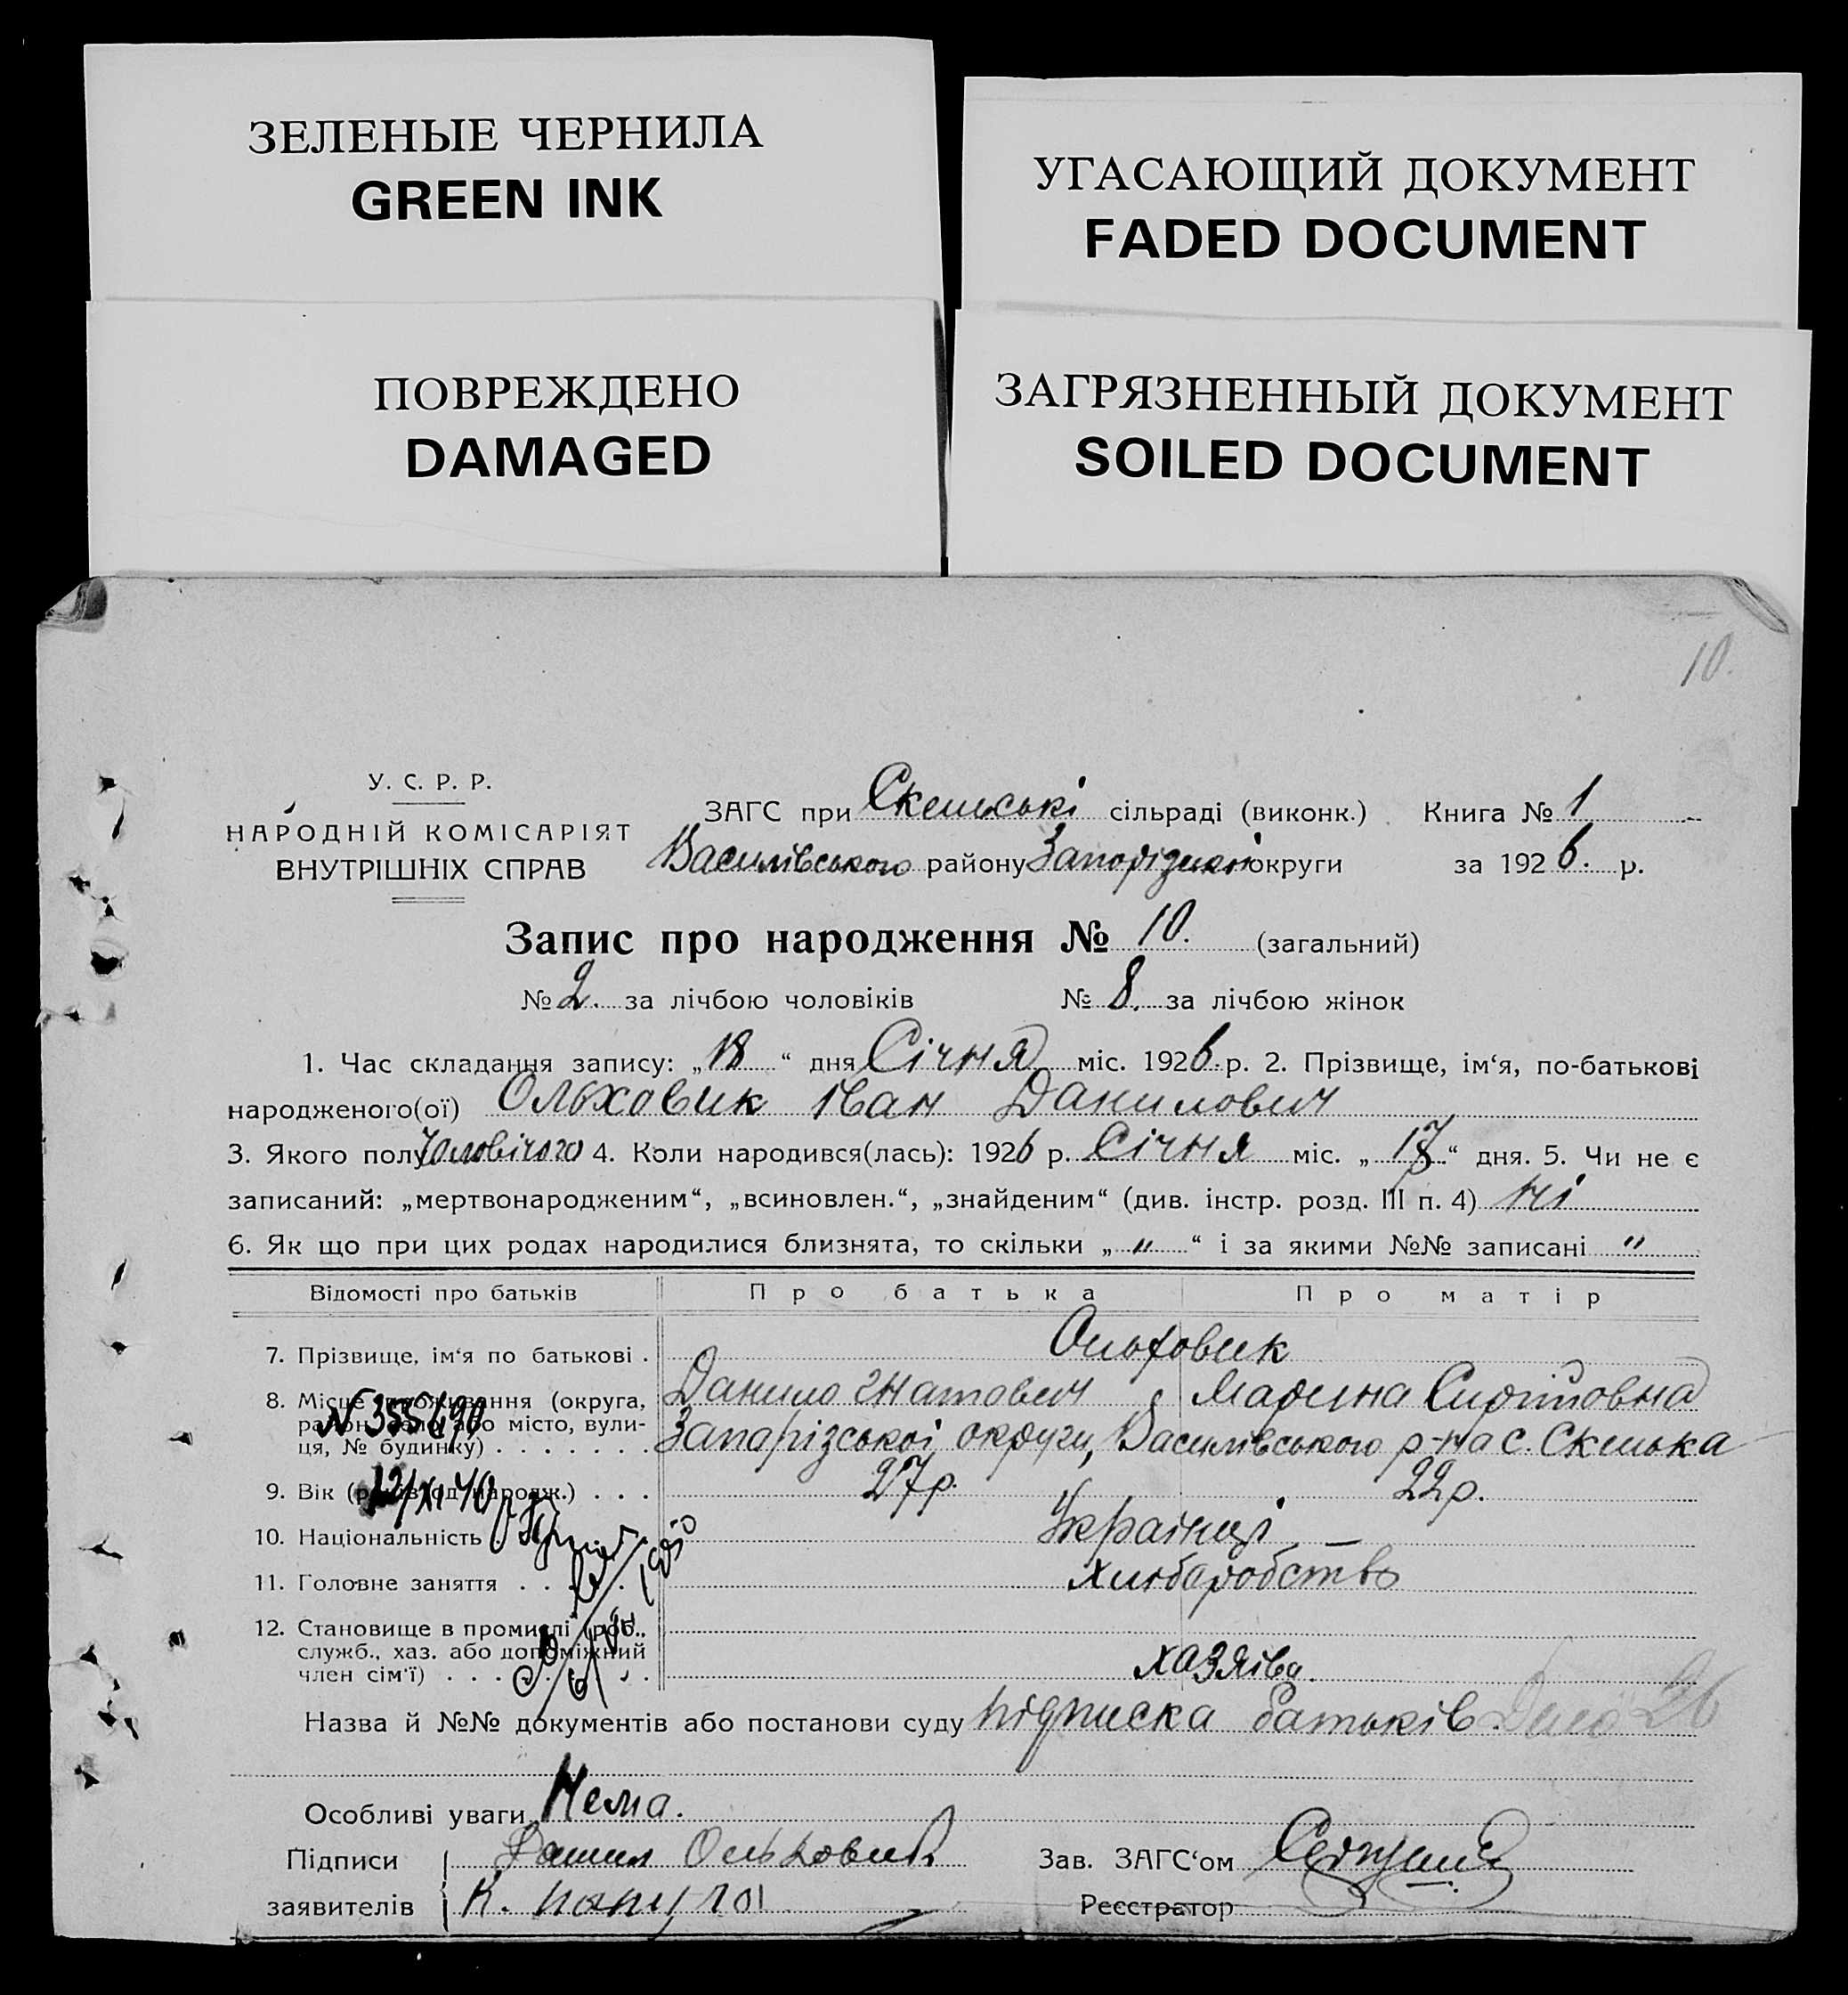 ЗЕЛЕНЫЕ ЧЕРНИЛА
GREEN INK
УГАСАЮЩИЙ ДОКУМЕНТ
FADED DOCUMENT
ПОВРЕЖДЕНО
DAMAGED
ЗАГРЯЗНЕННЫЙ ДОКУМЕНТ
SOILED DOCUMENT
10.
У. С. Р. Р.
НАРОДНІЙ КОМІСАРІЯТ
ВНУТРІШНІХ СПРАВ
ЗАГС при Скельські сільраді (виконк.) Книга № 1
Василівського району Запорізької округи за 1926. р.
Запис про народження № 10. (загальний)
№ 2. за лічбою чоловіків № 8. за лічбою жінок
1. Час складання запису: „18“ дня Січня міс. 1926.р. 2. Прізвище, ім‘я, по-батькові
народженого(ої) Ольховик Іван Данилович
3. Якого полу Чоловічого 4. Коли народився(лась): 1926 р. Січня міс. „17“ дня. 5. Чи не є
записаний: „мертвонародженим“, „всиновлен.“, „знайденим“ (див. інстр. розд. III п. 4) ні
6. Як що при цих родах народилися близнята, то скільки „ " “ і за якими №№ записані "
Відомості про батьків Про батька Про матір
7. Прізвище, ім‘я по батькові . Ольховик
Данило Гнатович Марина
8. Місце проживання (округа,
район, село або місто, вули-
ця, № будинку) . . . . . . . Запорізської округи, Василівського р-на с. Скелька
N 355490
9. Вік (років од народж.) . . . 27р. 22р.
12/XI 40
10. Національність Українці
11. Головне заняття . . . . . хліборобство
12. Становище в промислі (роб.,
служб., хаз. або допоміжний
член сім‘ї) . . . . . . хазяіва.
Назва й №№ документів або постанови суду підписка батьків
Особливі уваги Нема.
Підписи Данил Ольховик Зав. ЗАГС‘ом
заявителів К. Реєстратор